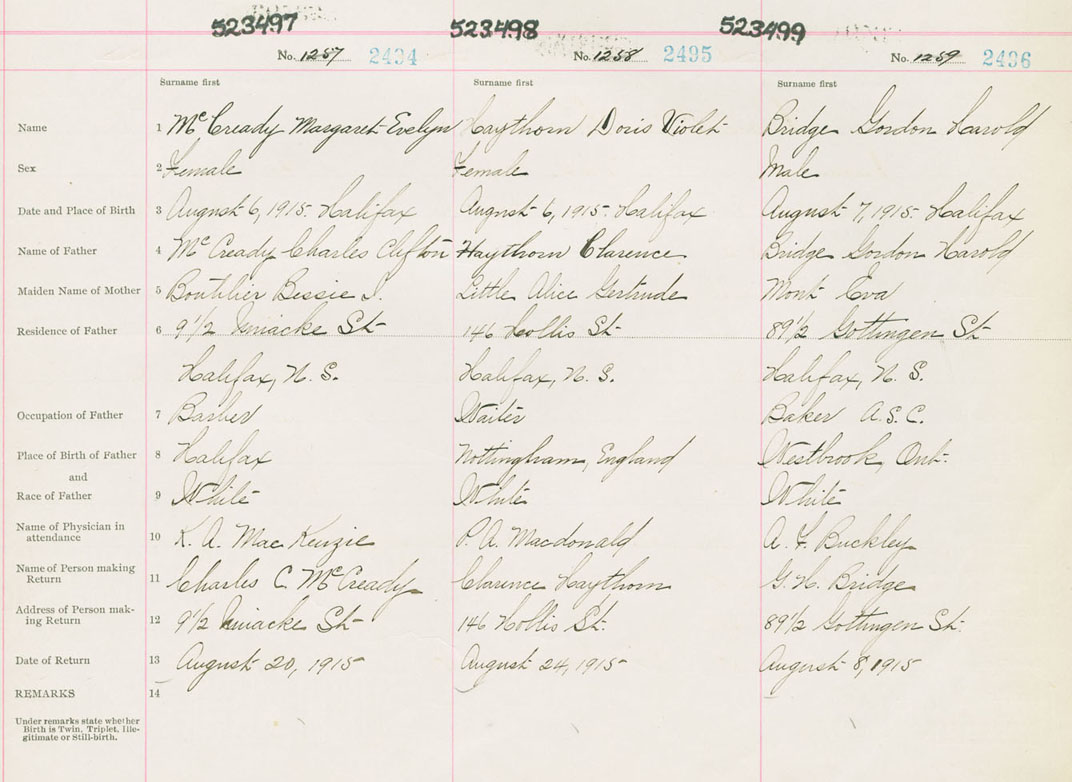 523497 523498 523499
No. 1257 2494 No. 1258 2495 No. 1259 2496
Surname first Surname first Surname first
Name 1 McCready Margaret Evelyn Haythorn Doris Violet Bridge Gordon Harold
Sex 2 Female Female Male
Date and Place of Birth 3 August 6, 1915. Halifax August 6, 1915. Halifax August 7, 1915. Halifax
Name of Father 4 McCready Charles Clifton Haythorn Clarence Bridge Gordon Harold
Maiden Name of Mother 5 Boutilier Bessie J. Little Alice Gertrude Mont Eva
Residence of Father 6 9 1/2 Uniacke St 146 Hollis St 89 1/2 Gottingen St
Halifax, N. S. Halifax, N. S. Halifax, N. S.
Occupation of Father 7 Barber Waiter Baker A.S.C.
Place of Birth of Father 8 Halifax Nottingham, England Westbrook, Ont.
and
Race of Father 9 White White White
Name of Physician in
attendance 10 K. A. MacKenzie P. A. Macdonald A. F. Buckley
Name of Person making
Return 11 Charles C. McCready Clarence Haythorn G. H. Bridge
Address of Person mak-
ing Return 12 9 1/2 Uniacke St 146 Hollis St. 89 1/2 Gottingen St.
Date of Return 13 August 20, 1915 August 24, 1915 August 8, 1915
REMARKS 14
Under remarks state whether
Birth is Twin, Triplet, Ille-
gitimate or Still-birth.